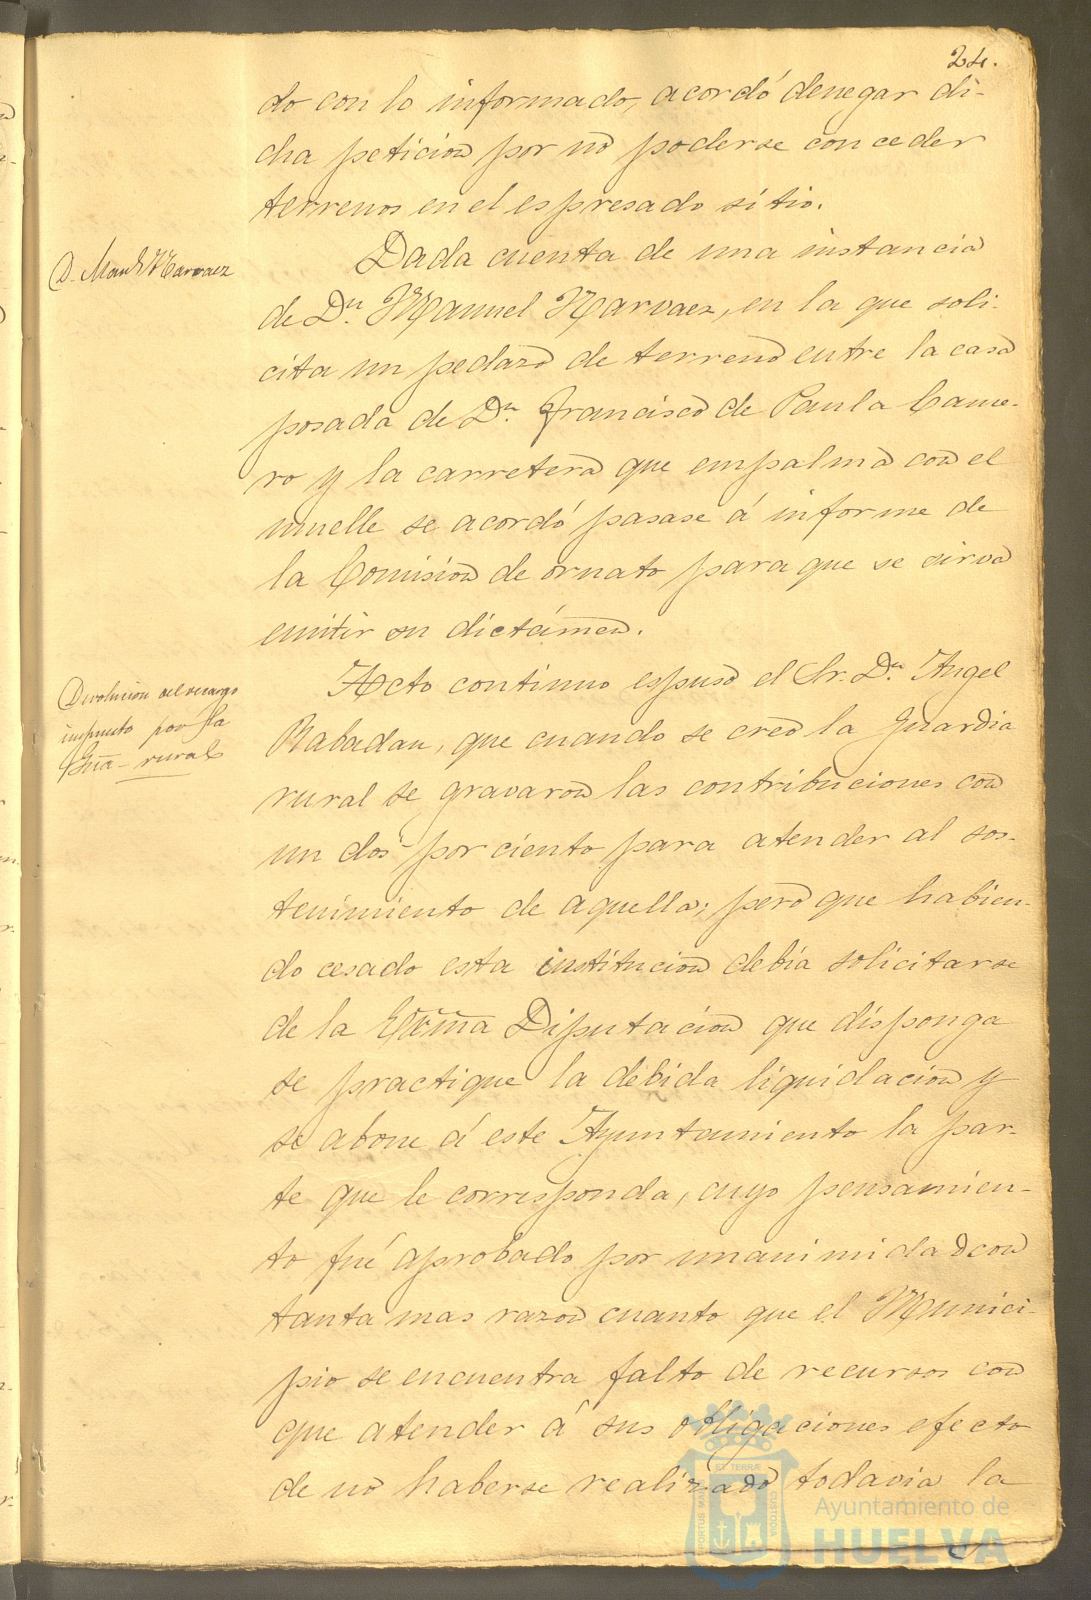 24.
do con lo informado, acordó denegar di-
cha peticion por no poderse conceder
terrenos en el espresado sitio.
D. Manl Narvaez
Dada cuenta de una instancia
de Dn. Manuel Narvaez, en la que soli-
cita un pedazo de terreno entre la casa
posada de Dn. Francisco de Paula Came-
ro y la carretera que empalma con el
muelle se acordó pasase á informe de
la Comision de ornato para que se sirva
emitir su dictámen.
Devolucion del recargo
impuesto por la
Gua- rural
Acto continuo espuso el Sr. Dn. Angel
Rabadan, que cuando se creó la guardia
rural se gravaron las contribuciones con
un dos por ciento para atender al sos-
tenimiento de aquella; pero que habien-
do cesado esta institucion debia solicitarse
de la Exma Diputacion que disponga
se practique la debida liquidacion y
se abone á este Ayuntamiento la par-
te que le corresponda, cuyo pensamien-
to fué aprobado por unanimidad con
tanta mas razon cuanto que el Munici-
pio se encuentra falto de recursos con
que atender á sus obligaciones efecto
de no haberse realizado todavia la
Ayuntamiento de
HUELVA